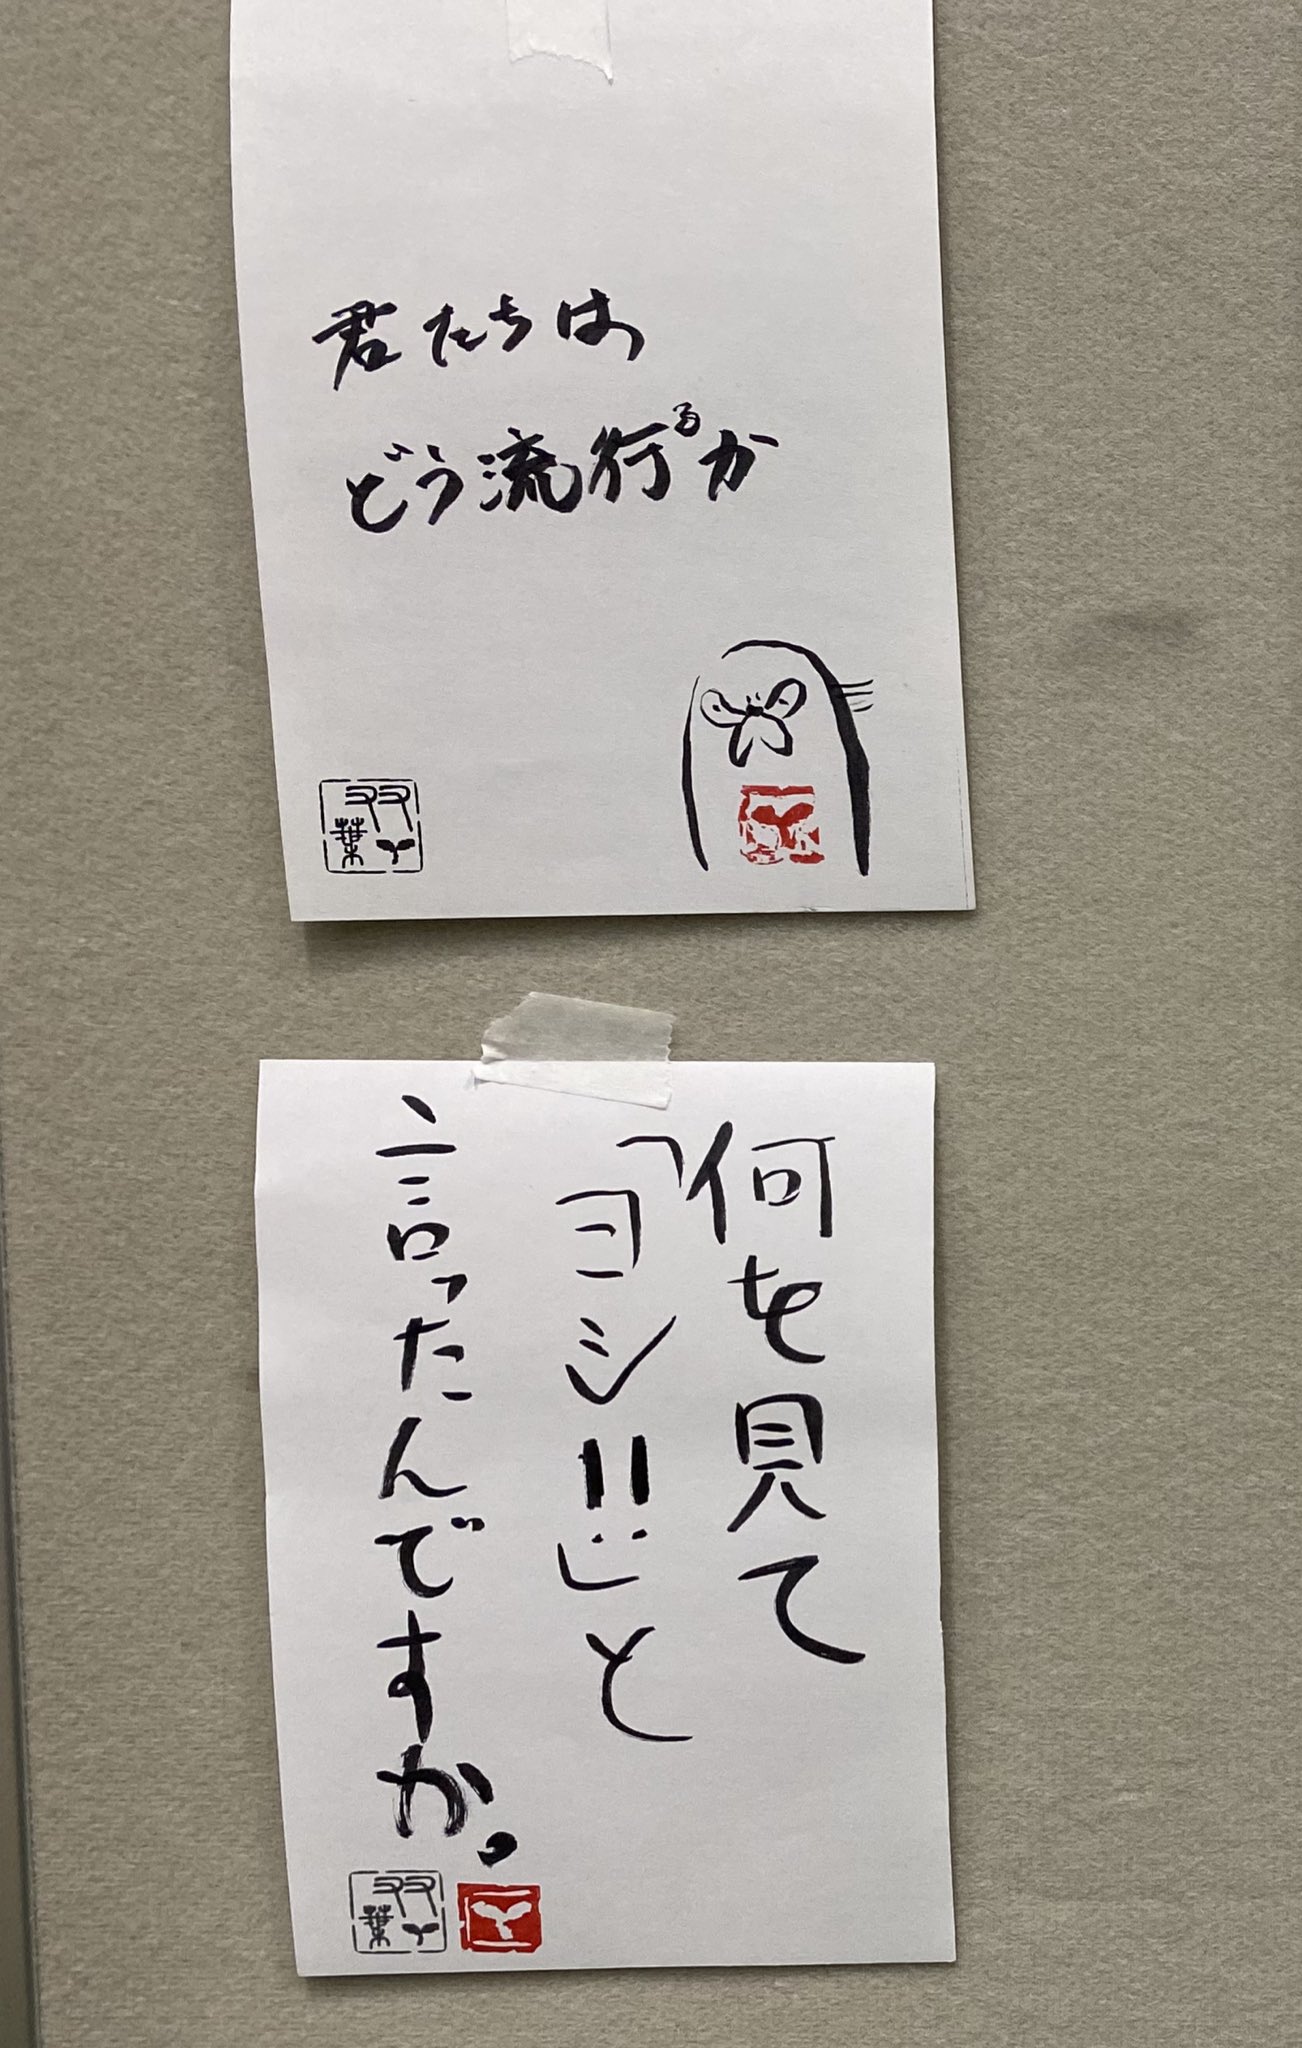 君たちは
どう流行るか
双葉
何を見て
「ヨシ!!」と
言ったんですか。
双葉